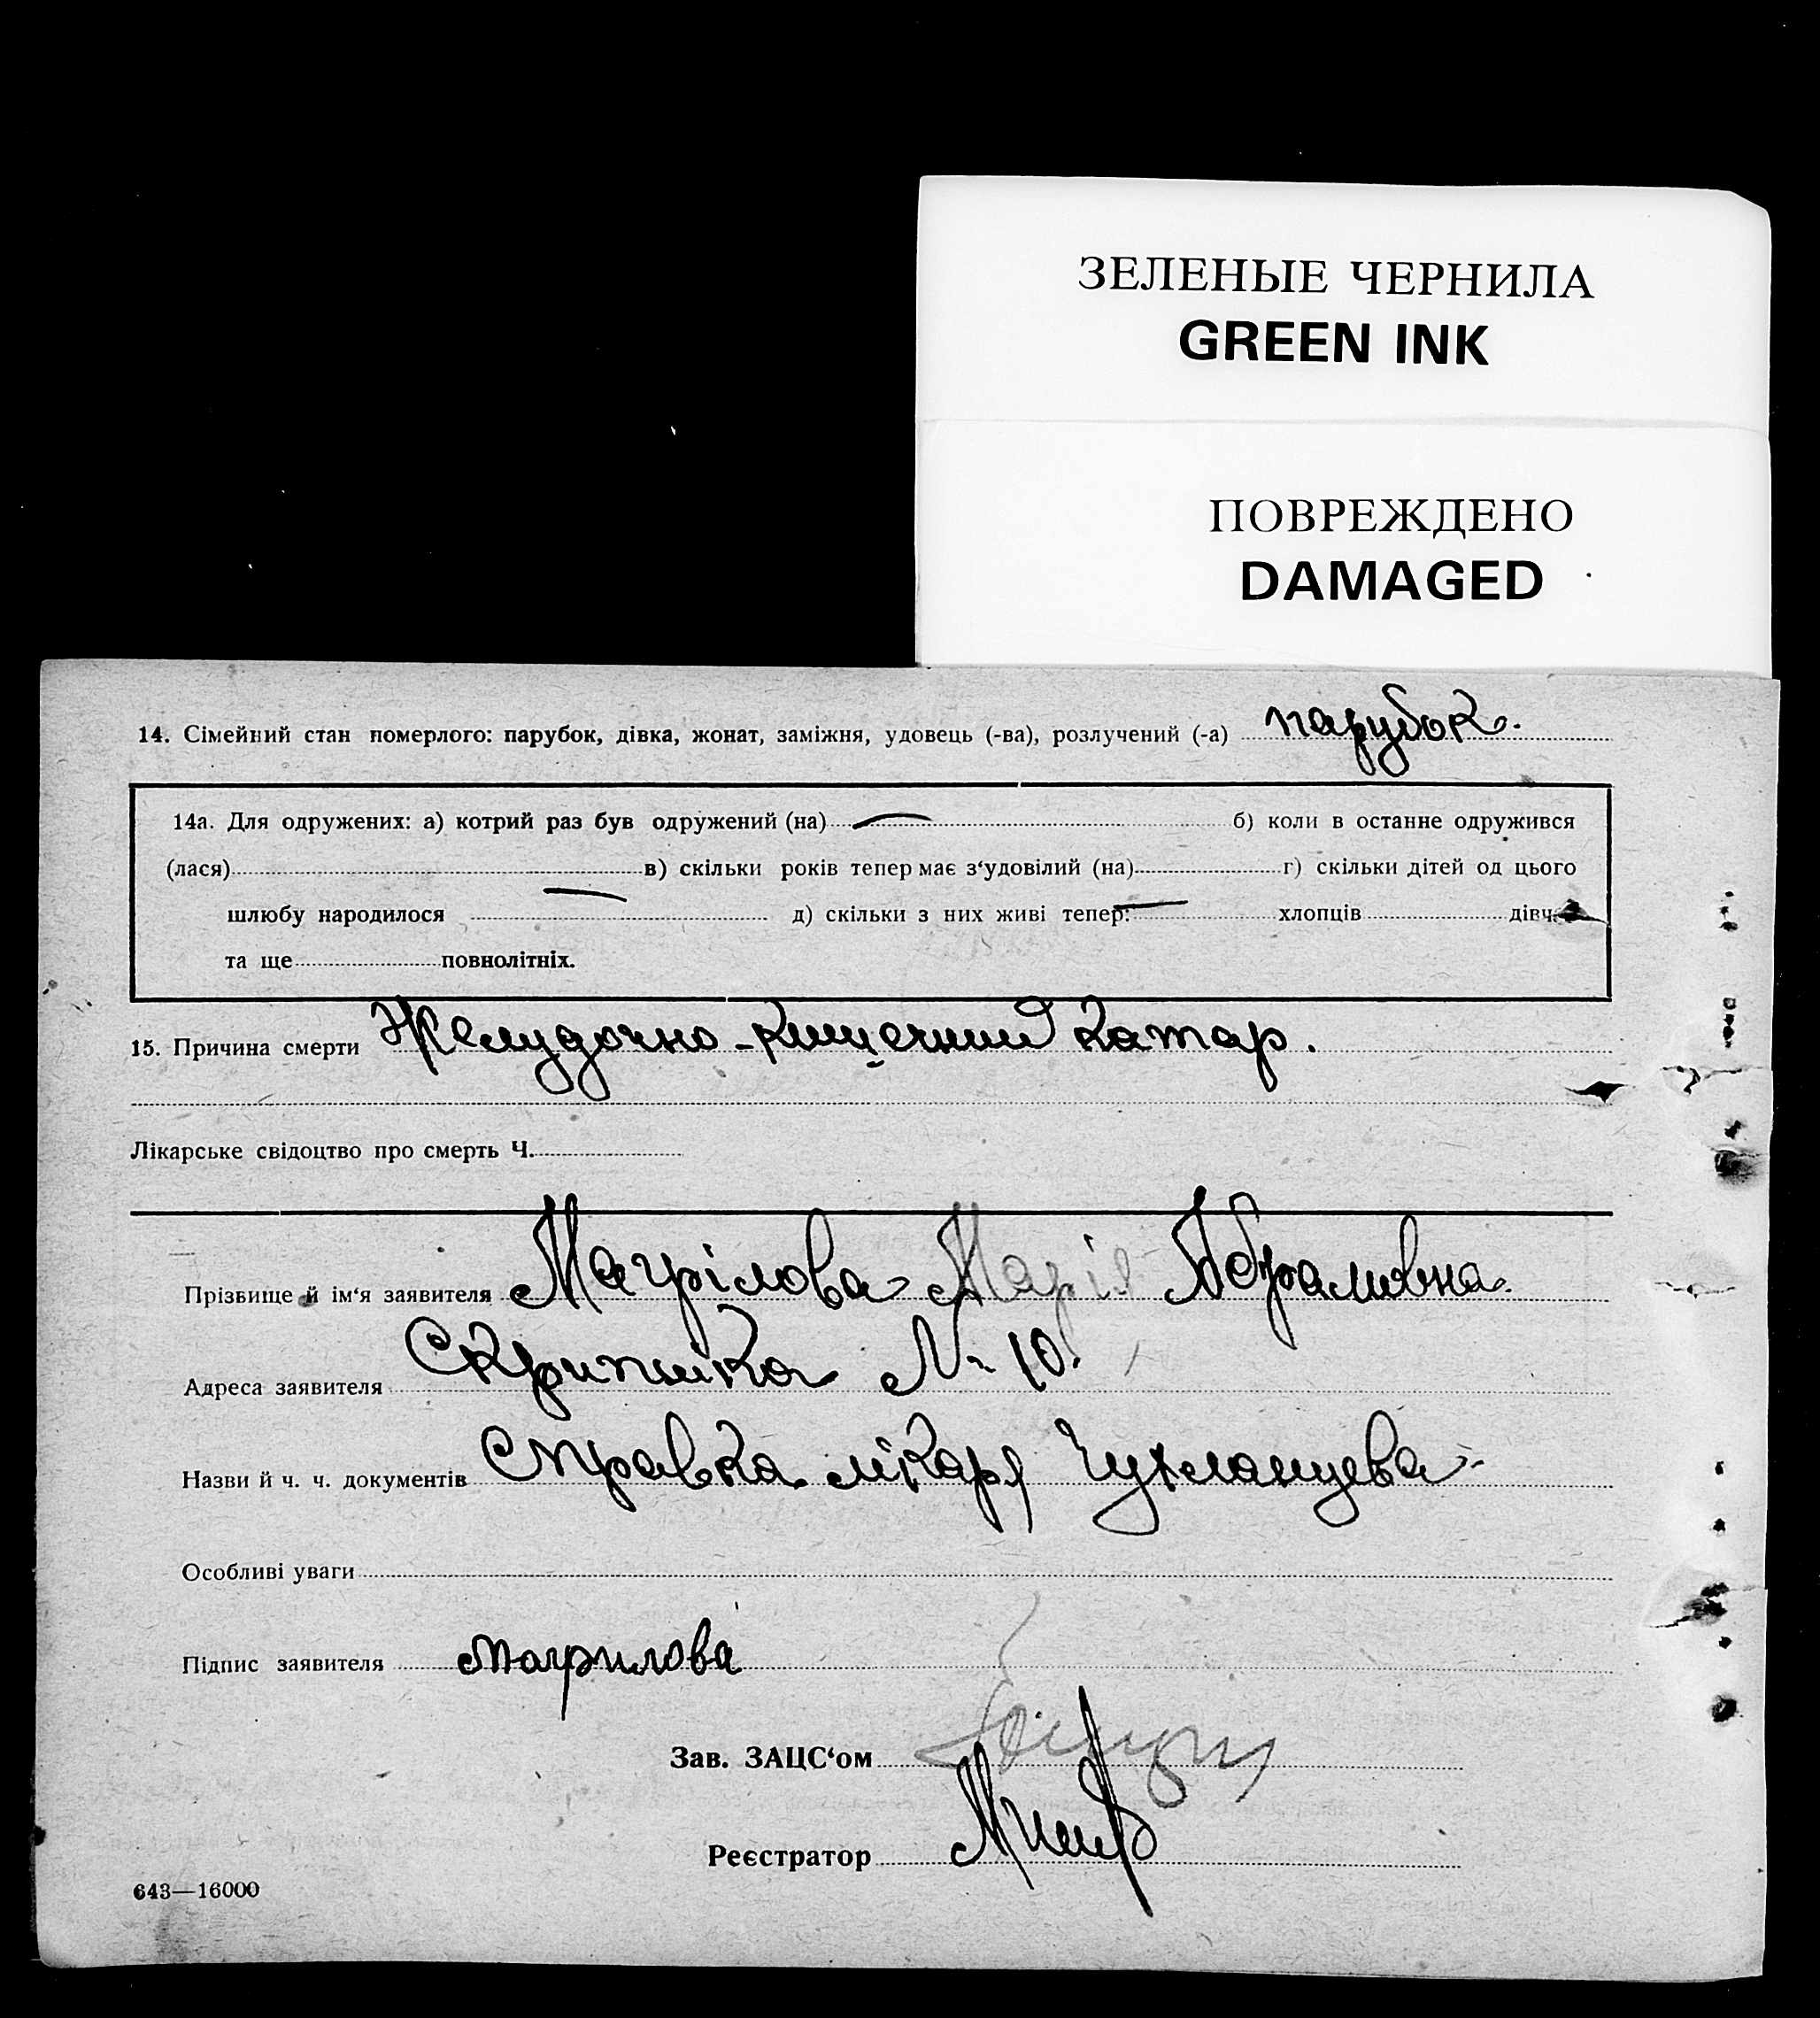 ЗЕЛЕНЫЕ ЧЕРНИЛА
GREEN INK
ПОВРЕЖДЕНО
DAMAGED
14. Сімейний стан померлого: парубок, дівка, жонат, заміжня, удовець (-ва), розлучений (-а) парубок.
14а. Для одружених: а) котрий раз був одружений (на) б) коли в останне одружився
(лася) в) скільки років тепер має з‘удовілий (на) г) скільки дітей од цього
шлюбу народилося д) скільки з них живі тепер: хлопців дівч.
та ще повнолітніх.
15. Причина смерти Желудочно-кишечний катар.
Лікарське свідоцтво про смерть Ч.
Прізвище й ім‘я заявителя Магрілова Марія Абрамовна.
Адреса заявителя Скрипника № 10.
Назви й ч. ч. документів Справка лікаря Чухланцева
Особливі уваги
Підпис заявителя Магрилова
Зав. ЗАЦС‘ом
Реєстратор
643—16000